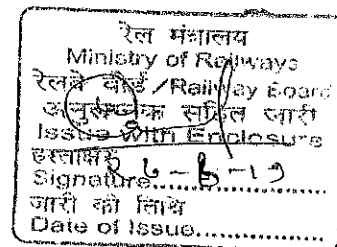 रेल मंत्रालय
Ministry of Railways
रेलवे बोर्ड/Railway Board
अनुलग्नक सहित जारी
Issue with Enclosure
हस्ताक्षर
Signature..................
जारी की तिथि
Date of Issue..............